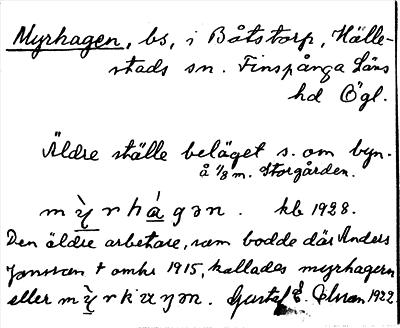 Myrhagen, bs, i Båtstorp, Hälle-
stads sn. Finspånga läns
hd Ögl.
Äldre ställe beläget s. om byn.
å 1/8 m. Storgården.
mỳrhágən. kb 1928.
Den äldre arbetare, som bodde där Anders
Jansson † omkr 1915, kallades myrhagern
eller
Gustaf E. 1922